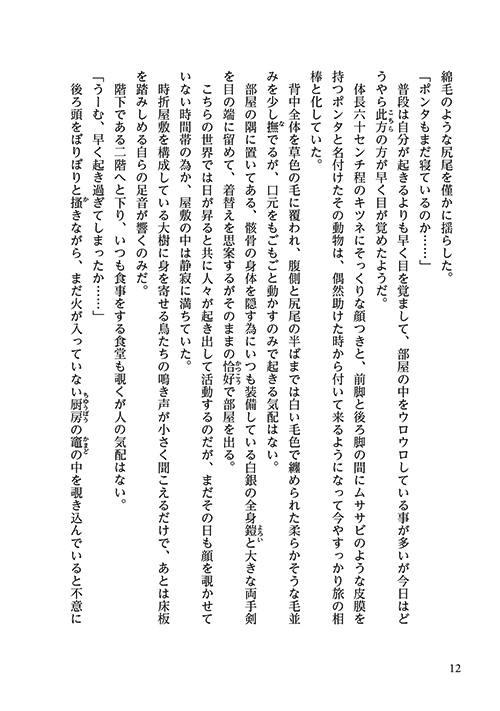 綿毛のような尻尾を僅かに揺らした。
「ポンタもまだ寝ているのか……」
普段は自分が起きるよりも早く目を覚まして、部屋の中をウロウロしている事が多いが今日はど
うやら此方の方が早く目が覚めたようだ。
体長六十センチ程のキツネにそっくりな顔つきと、前脚と後ろ脚の間にムササビのような皮膜を
持つポンタと名付けたその動物は、偶然助けた時から付いて来るようになって今やすっかり旅の相
棒と化していた。
背中全体を草色の毛に覆われ、腹側と尻尾の半ばまでは白い毛色で纏められた柔らかそうな毛並
みを少し撫でるが、口元をもごもごと動かすのみで起きる気配はない。
部屋の隅に置いてある、骸骨の身体を隠す為にいつも装備している白銀の全身鎧と大きな両手剣
を目の端に留めて、着替えを思案するがそのままの恰好で部屋を出る。
こちらの世界では日が昇ると共に人々が起き出して活動するのだが、まだその日も顔を覗かせて
いない時間帯の為か、屋敷の中は静寂に満ちていた。
時折屋敷を構成している大樹に身を寄せる鳥たちの鳴き声が小さく聞こえるだけで、あとは床板
を踏みしめる自らの足音が響くのみだ。
階下である二階へと下り、いつも食事をする食堂も覗くが人の気配はない。
「うーむ、早く起き過ぎてしまったか……」
後ろ頭をぽりぽりと掻きながら、まだ火が入っていない厨房の竈の中を覗き込んでいると不意に
12